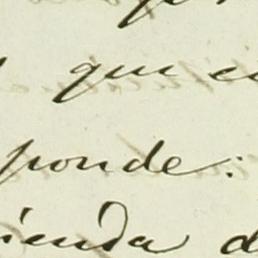 que
ponde:
ienda d